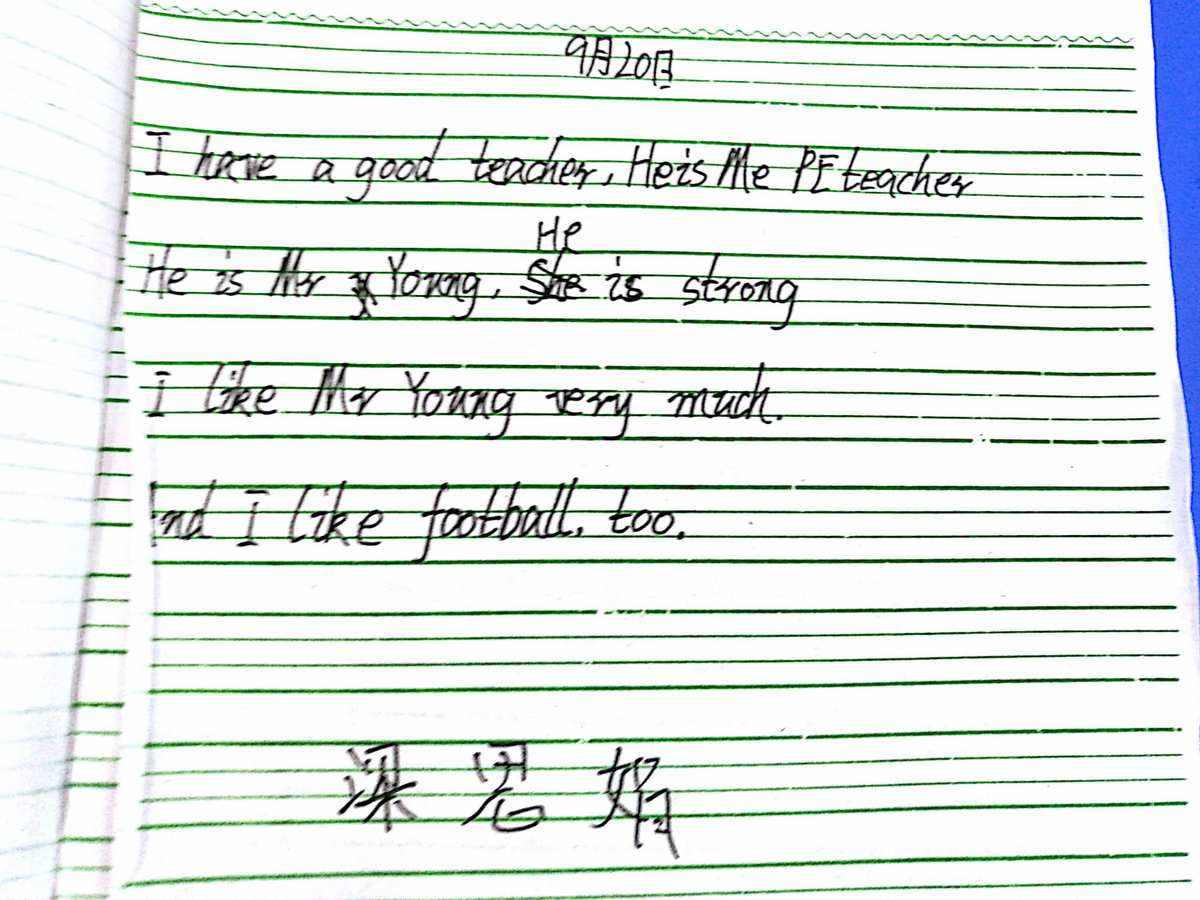 9月20日
I have a good teacher, He is Me PE teacher
He
He is Mr Young, She is strong
I like Mr Young very much.
And I like football, too.
梁